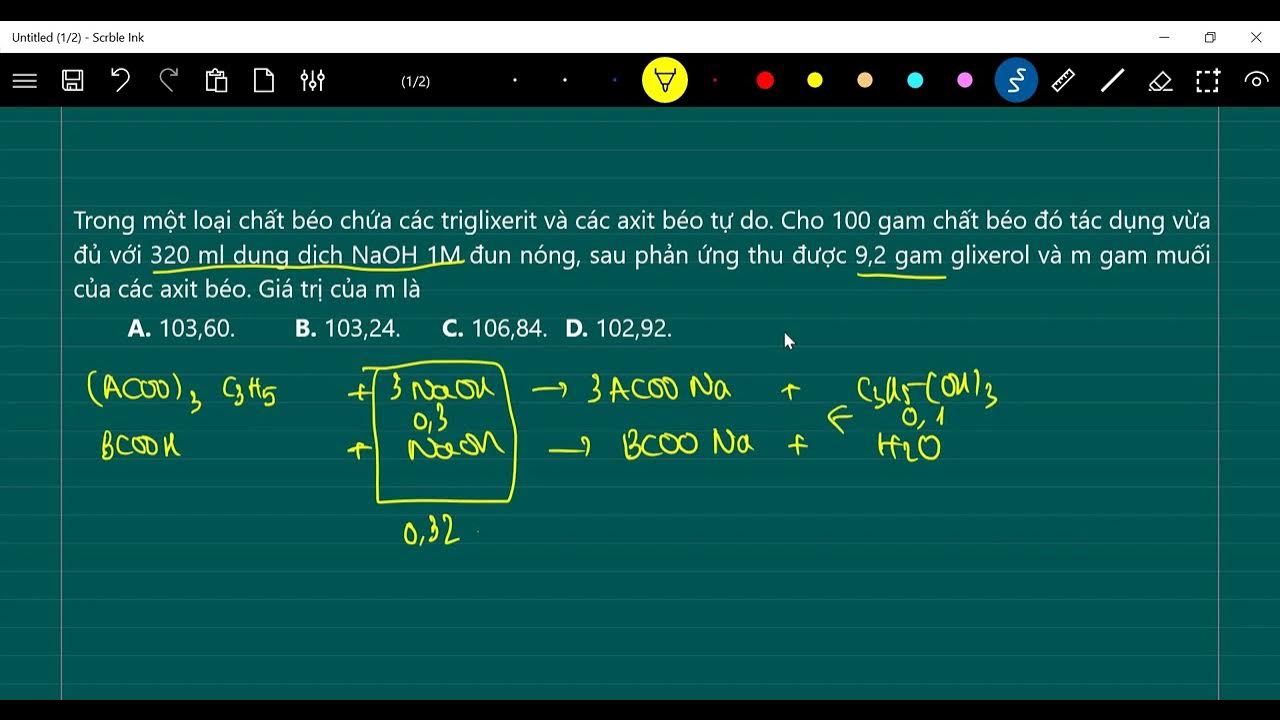 Untitled (1/2) - Scrble Ink
(1/2)
Trong một loại chất béo chứa các triglixerit và các axit béo tự do. Cho 100 gam chất béo đó tác dụng vừa
đủ với 320 ml dung dịch NaOH 1M đun nóng, sau phản ứng thu được 9,2 gam glixerol và m gam muối
của các axit béo. Giá trị của m là
A. 103,60. B. 103,24. C. 106,84. D. 102,92.
(ACOO)3 C3H5 + 3 NaOH → 3 ACOO Na + C3H5-(OH)3
0,3 ← 0,1
BCOOH + NaOH → BCOO Na + H2O
0,32